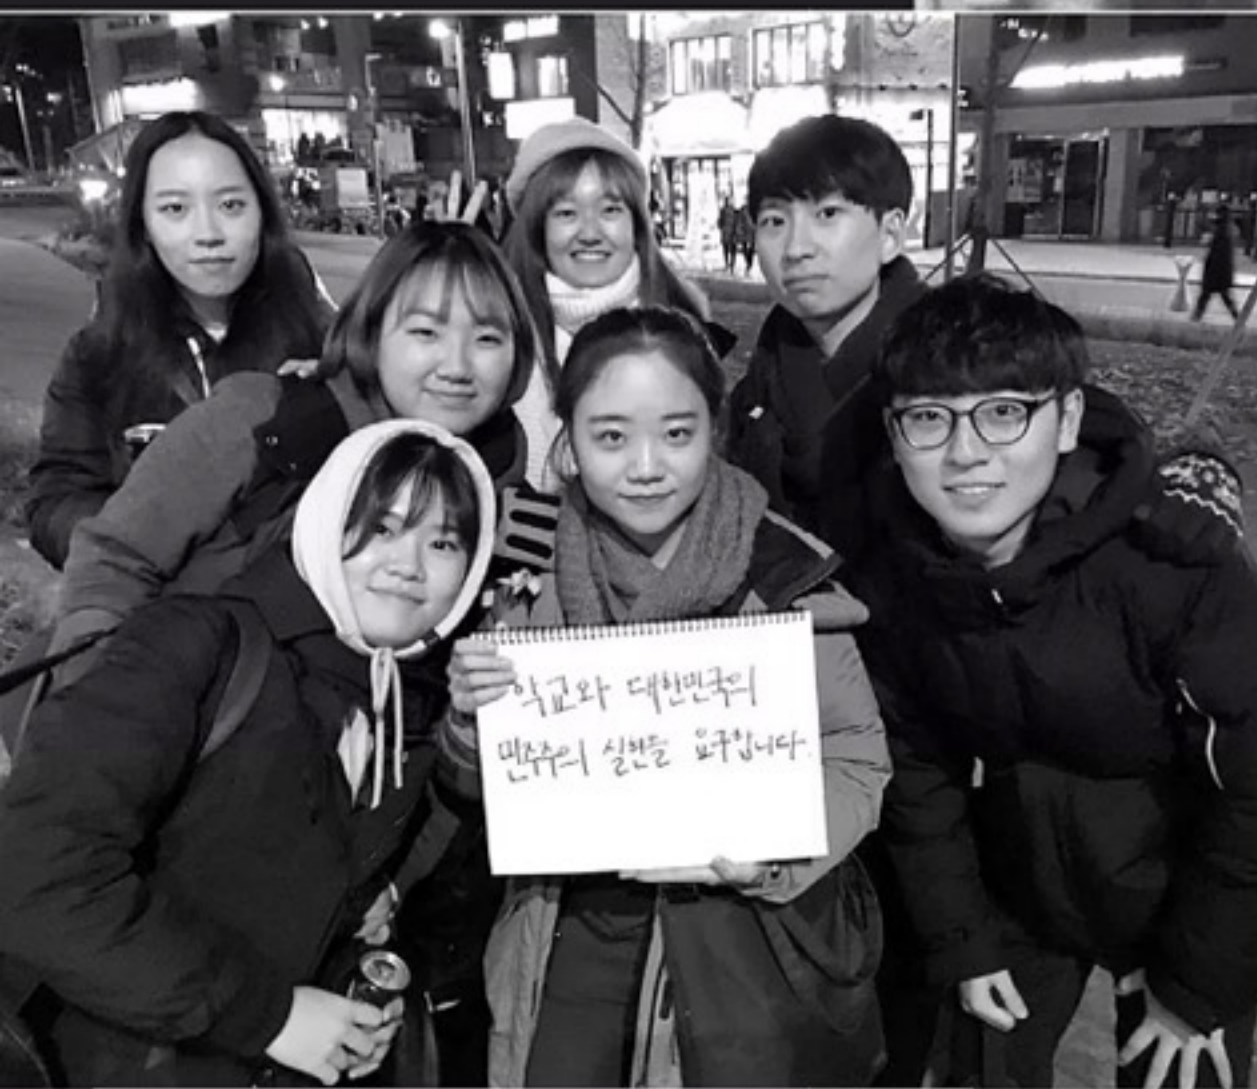 학교와 대한민국의
민주주의 실현을 요구합니다.